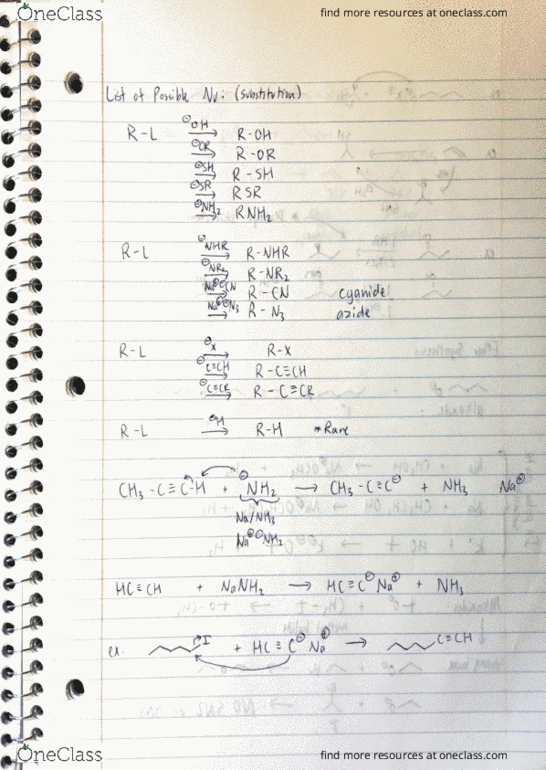 OneClass
find more resources at oneclass.com
List of Possible Nu: (substitution)
R-L ⊖OH → R-OH
⊖OR → R-OR
⊖SH → R-SH
⊖SR → RSR
⊖NH₂ → RNH₂
R-L ⊖NHR → R-NHR
⊖NR₂ → R-NR₂
Na⊕⊖CN → R-CN cyanide
Na⊕⊖N₃ → R-N₃ azide
R-L ⊖X → R-X
⊖C≡CH → R-C≡CH
⊖C≡CR → R-C≡CR
R-L ⊖H → R-H *Rare
CH₃-C≡C-H + ⊖NH₂ → CH₃-C≡C⊖ + NH₃ Na⊕
Na/NH₃
Na⊕⊖NH₂
HC≡CH + NaNH₂ → HC≡C⊖Na⊕ + NH₃
ex. I + HC≡C⊖ Na⊕ → C≡CH
OneClass
find more resources at oneclass.com